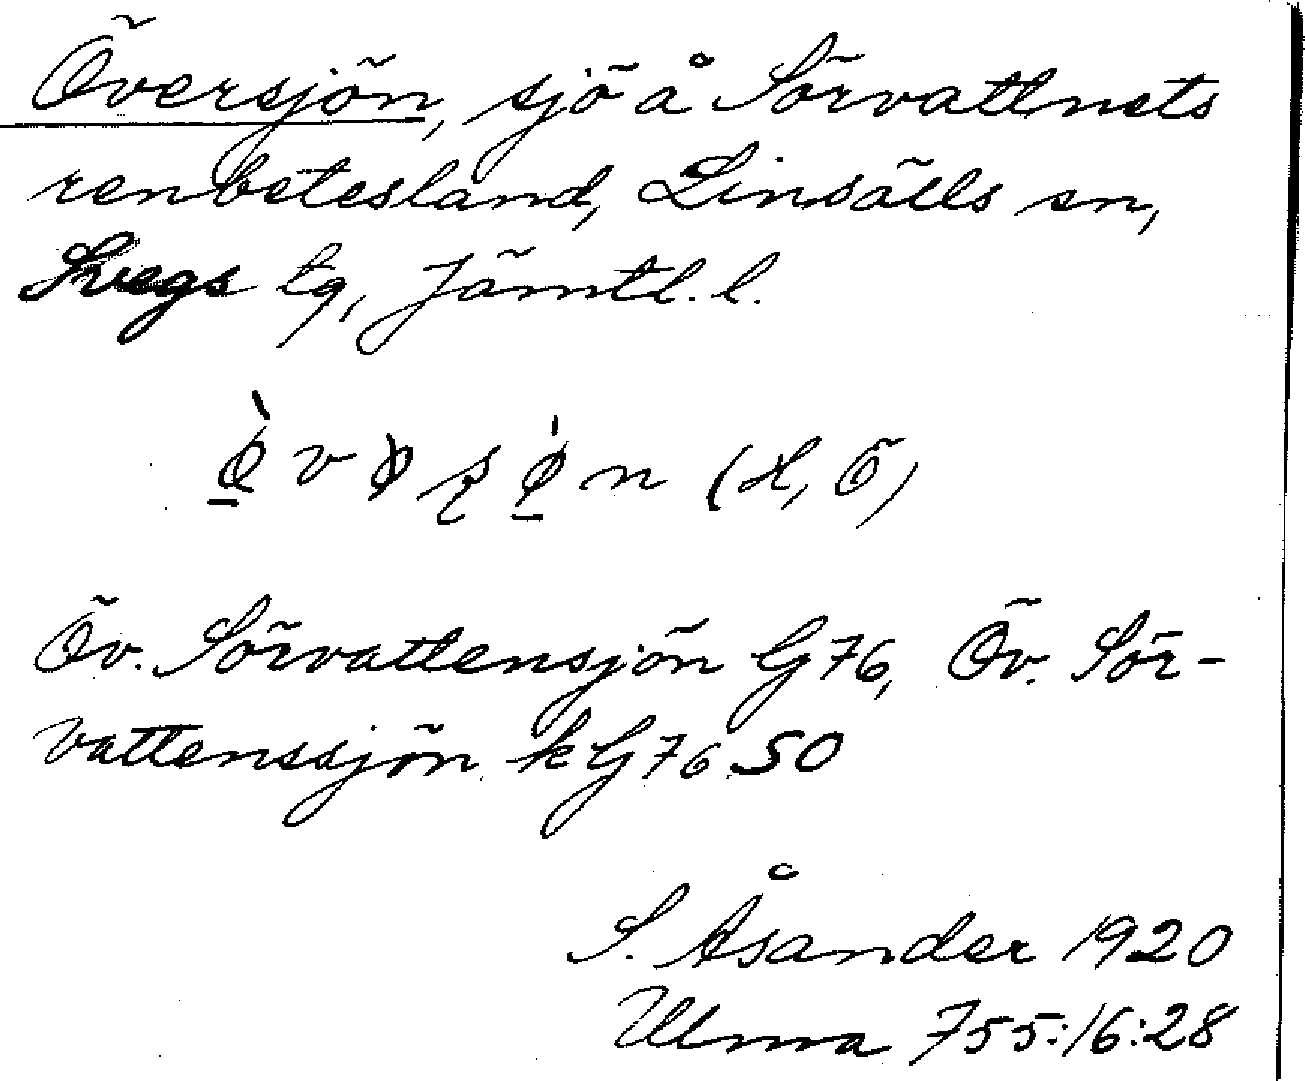 Översjön, sjö å Sörvattnets
renbetesland, Linsälls sn,
Svegs tg, Jämtl. l.
(H, Ö)
Öv. Sörvattensjön G 76, Öv. Sör-
vattenssjön kG 76 SO
S. Åsander 1920
Ulma 755:16:28